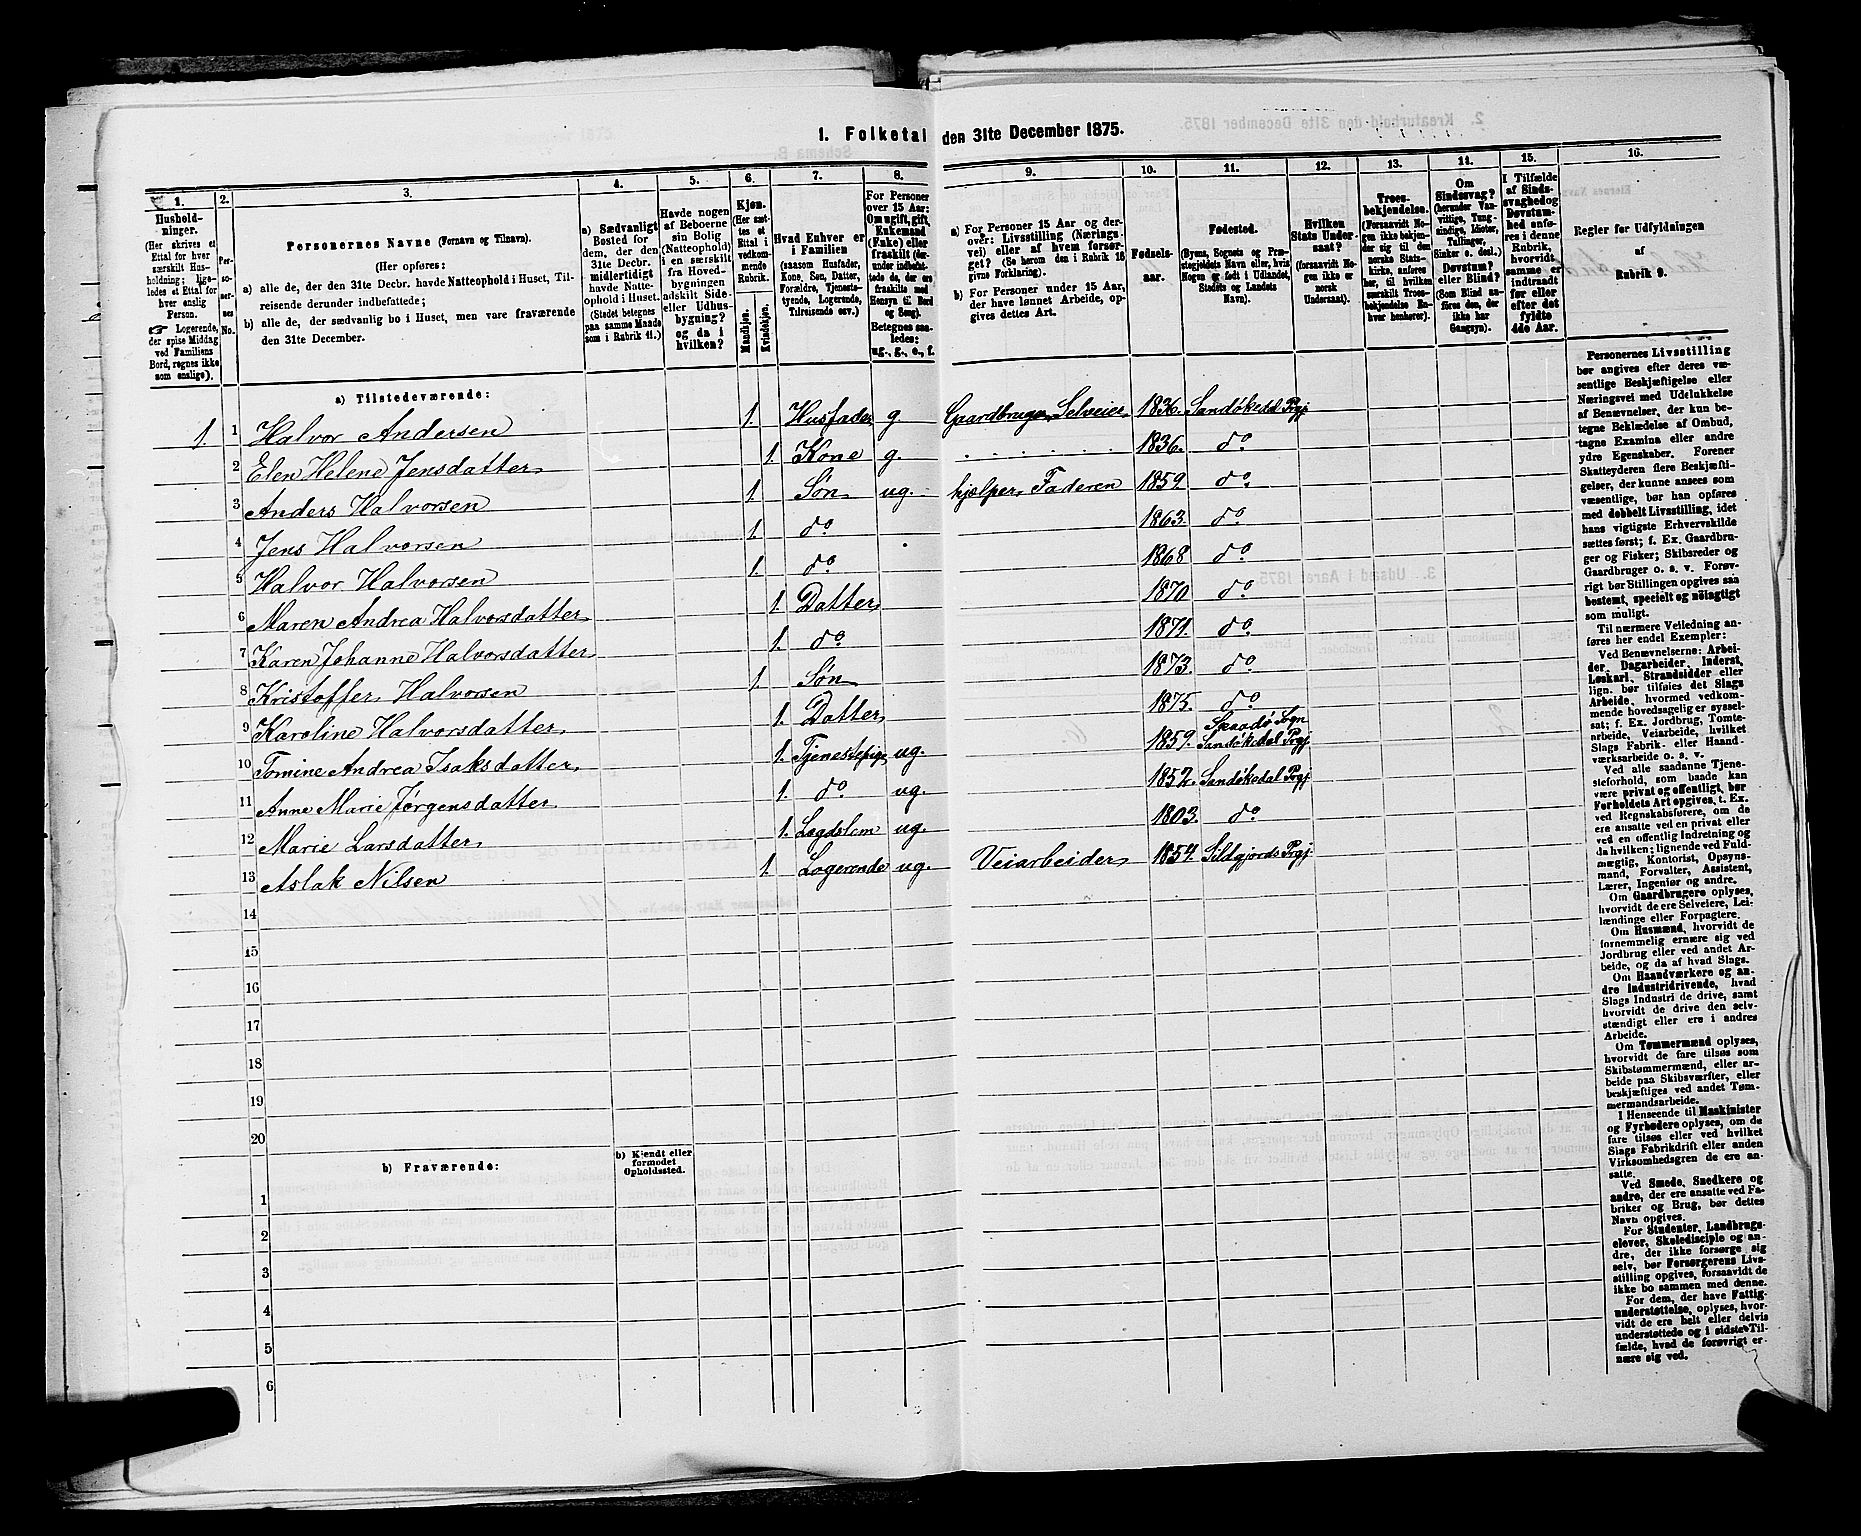 1. Folketal den 31te December 1875.
1. 2. 3. 4. 5. 6. 7. 8. 9. 10. 11. 12. 13. 14. 15. 16.
Hushold-
ninger.
(Her skrives et
Ettal for hver
særskilt Hus-
holdning; lige-
ledes et Ettal for
hver enslig
Person.
☞ Logerende,
der spise Middag
ved Familiens
Bord, regnes ikke
som enslige).
Per-
so-
ner-
nes
No.
Personernes Navne (Fornavn og Tilnavn).
(Her opføres:
a) alle de, der den 31te Decbr. havde Natteophold i Huset, Til-
reisende derunder indbefattede;
b) alle de, der sædvanlig bo i Huset, men vare fraværende
den 31te December.
a) Sædvanligt
Bosted for
dem, der den
31te Decbr.
midlertidigt
havde Natte-
ophold i Huset.
(Stedet betegnes
paa samme Maade
som i Rubrik 11.)
Havde nogen
af Beboerne
sin Bolig
(Natteophold)
i en særskilt
fra Hoved-
bygningen
adskilt Side-
eller Udhus-
bygning?
og da i
hvilken?
Kjøn.
(Her sæt-
tes et
Ettal i
vedkom-
mende
Rubrik.
Mandkjøn.
Kvindekjøn.
Hvad Enhver er
i Familien
(saasom Husfader,
Kone, Søn, Datter,
Forældre, Tjeneste-
tyende, Logerende,
Tilreisende osv.)
For Personer
over 15 Aar:
Om ugift, gift,
Enkemand
(Enke) eller
fraskilt (der-
under indbefat-
tede de, der ere
fraskilte med
Hensyn til Bord
og Seng).
Betegnes saa-
ledes:
ug., g., e., f.
a) For Personer 15 Aar og der-
over: Livsstilling (Nærings-
vei) eller af hvem forsør-
get? (Se herom den i Rubrik 16
givne Forklaring).
b) For Personer under 15 Aar,
der have lønnet Arbeide, op-
gives dettes Art.
Fødsels-
aar.
Fødested.
(Byens, Sognets og Præ-
stegjeldets Navn eller, hvis
Nogen er født i Udlandet,
Stedets og Landets
Navn).
Hvilken
Stats Under-
saat?
(forsaavidt No-
gen ikke er
norsk
Undersaat).
Troes-
bekjendelse.
(Forsaavidt No-
gen ikke bekjen-
der sig til den
norske Stats-
kirke, anføres
her, til hvilken
særskilt Troes-
bekjendelse En-
hver henhører).
Om
Sindssvag?
(herunder Van-
vittige, Tung-
sindige, Idioter,
Tullinger,
Sinker o. desl.)
Døvstum?
eller Blind?
(Som Blind an-
føres den, der
ikke har
Gangsyn).
I Tilfælde
af Sinds-
svaghed og
Døvstum-
hed anfø-
res i denne
Rubrik,
hvorvidt
samme er
indtraadt
før eller
efter det
fyldte
4de Aar.
Regler for Udfyldningen
af
Rubrik 9.
a) Tilstedeværende:
1. 1 Halvor Andersen 1. Husfader g. Gaardbruger, Selveier 1836. Sandøkedal Prgj
2 Elen Helene Jensdatter 1. Kone g. 1836. do
3 Anders Halvorsen 1. Søn ug. hjælper Faderen 1859 do
4 Jens Halvorsen 1. do 1863. do
5 Halvor Halvorsen 1. do 1868 do
6 Maren Andrea Halvorsdatter 1. Datter 1870 do
7 Karen Johanne Halvorsdatter 1. do 1871. do
8 Kristoffer Halvorsen 1. Søn 1873. do
9 Karoline Halvorsdatter 1. Datter 1875. do
10 Tomine Andrea Isaksdatter 1. Tjenestepige ug. 1859. Skaadø Sogn Sandøkedal Prgj
11 Anne Marie Jørgensdatter 1. do ug. 1852. Sandøkedal Prgj
12 Marie Larsdatter 1. Lægdslem ug. 1803. do
13 Aslak Nilsen 1. Logerende ug. Veiarbeider 1854. Sildgjords Prgj
14
15
16
17
18
19
20
b) Fraværende:
b) Kjendt eller
formodet
Opholdssted.
1
2
3
4
5
6
Personernes Livsstilling
bør angives efter deres væ-
sentlige Beskjæftigelse eller
Næringsvei med Udelukkelse
af Benævnelser, der kun be-
tegne Beklædelse af Ombud,
tagne Examina eller andre
ydre Egenskaber. Forener
Skatteyderen flere Beskjæfti-
gelser, der kunne ansees som
væsentlige, bør han opføres
med dobbelt Livsstilling, idet
hans vigtigste Erhvervskilde
sættes først; f. Ex. Gaardbru-
ger og Fisker; Skibsreder og
Gaardbruger o. s. v. Forøv-
rigt bør Stillingen opgives saa
bestemt, specielt og nøiagtigt
som muligt.
Til nærmere Veiledning an-
føres her endel Exempler:
Ved Benævnelserne: Arbei-
der, Dagarbeider, Inderst,
Løskarl, Strandsidder eller
lign. bør tilføies det Slags
Arbeide, hvormed vedkom-
mende hovedsagelig er syssel-
sat; f. Ex. Jordbrug, Tomte-
arbeide, Veiarbeide, hvilket
Slags Fabrik- eller Haand-
værksarbeide o. s. v.
Ved alle saadanne Tjene-
steforhold, som baade kan
være privat og offentligt, bør
Forholdets Art opgives, t. Ex.
ved Regnskabsførere, om de
ere ansatte ved en privat eller
ved en offentlig Indretning og
da hvilken; lignende ved Fuld-
mægtig, Kontorist, Opsyns-
mand, Forvalter, Assistent,
Lærer, Ingeniør og andre.
Om Gaardbrugere oplyses,
hvorvidt de ere Selveiere, Lei-
lændinge eller Forpagtere.
Om Husmænd, hvorvidt de
fornemmelig ernære sig ved
Jordbrug eller ved andet Ar-
beide, og da af hvad Slags.
Om Haandværkere og an-
dre Industridrivende, hvad
Slags Industri de drive, samt
hvorvidt de drive den selv-
stændigt eller ere i andres
Arbeide.
Om Tømmermænd oplyses,
hvorvidt de fare tilsøs som
Skibstømmermænd, eller ar-
beide paa Skibsværfter, eller
beskjæftiges ved andet Tøm-
mermandsarbeide.
I Henseende til Maskinister
og Fyrbødere oplyses, om de
fare tilsøs eller ved hvilket
Slags Fabrikdrift eller anden
Virksomhedsgren de ere an-
satte.
Ved Smede, Snedkere og
andre, der ere ansatte ved Fa-
briker og Brug, bør dettes
Navn opgives.
For Studenter, Landbrugs-
elever, Skoledisciple og an-
dre, der ikke forsørge sig
selv, bør Forsørgerens Livs-
stilling opgives, forsaavidt de
ikke bo sammen med denne.
For dem, der have Fattig-
understøttelse, oplyses, hvor-
vidt de ere helt eller delvis
understøttede og i sidste Til-
fælde, hvad de forøvrigt er-
nære sig ved.